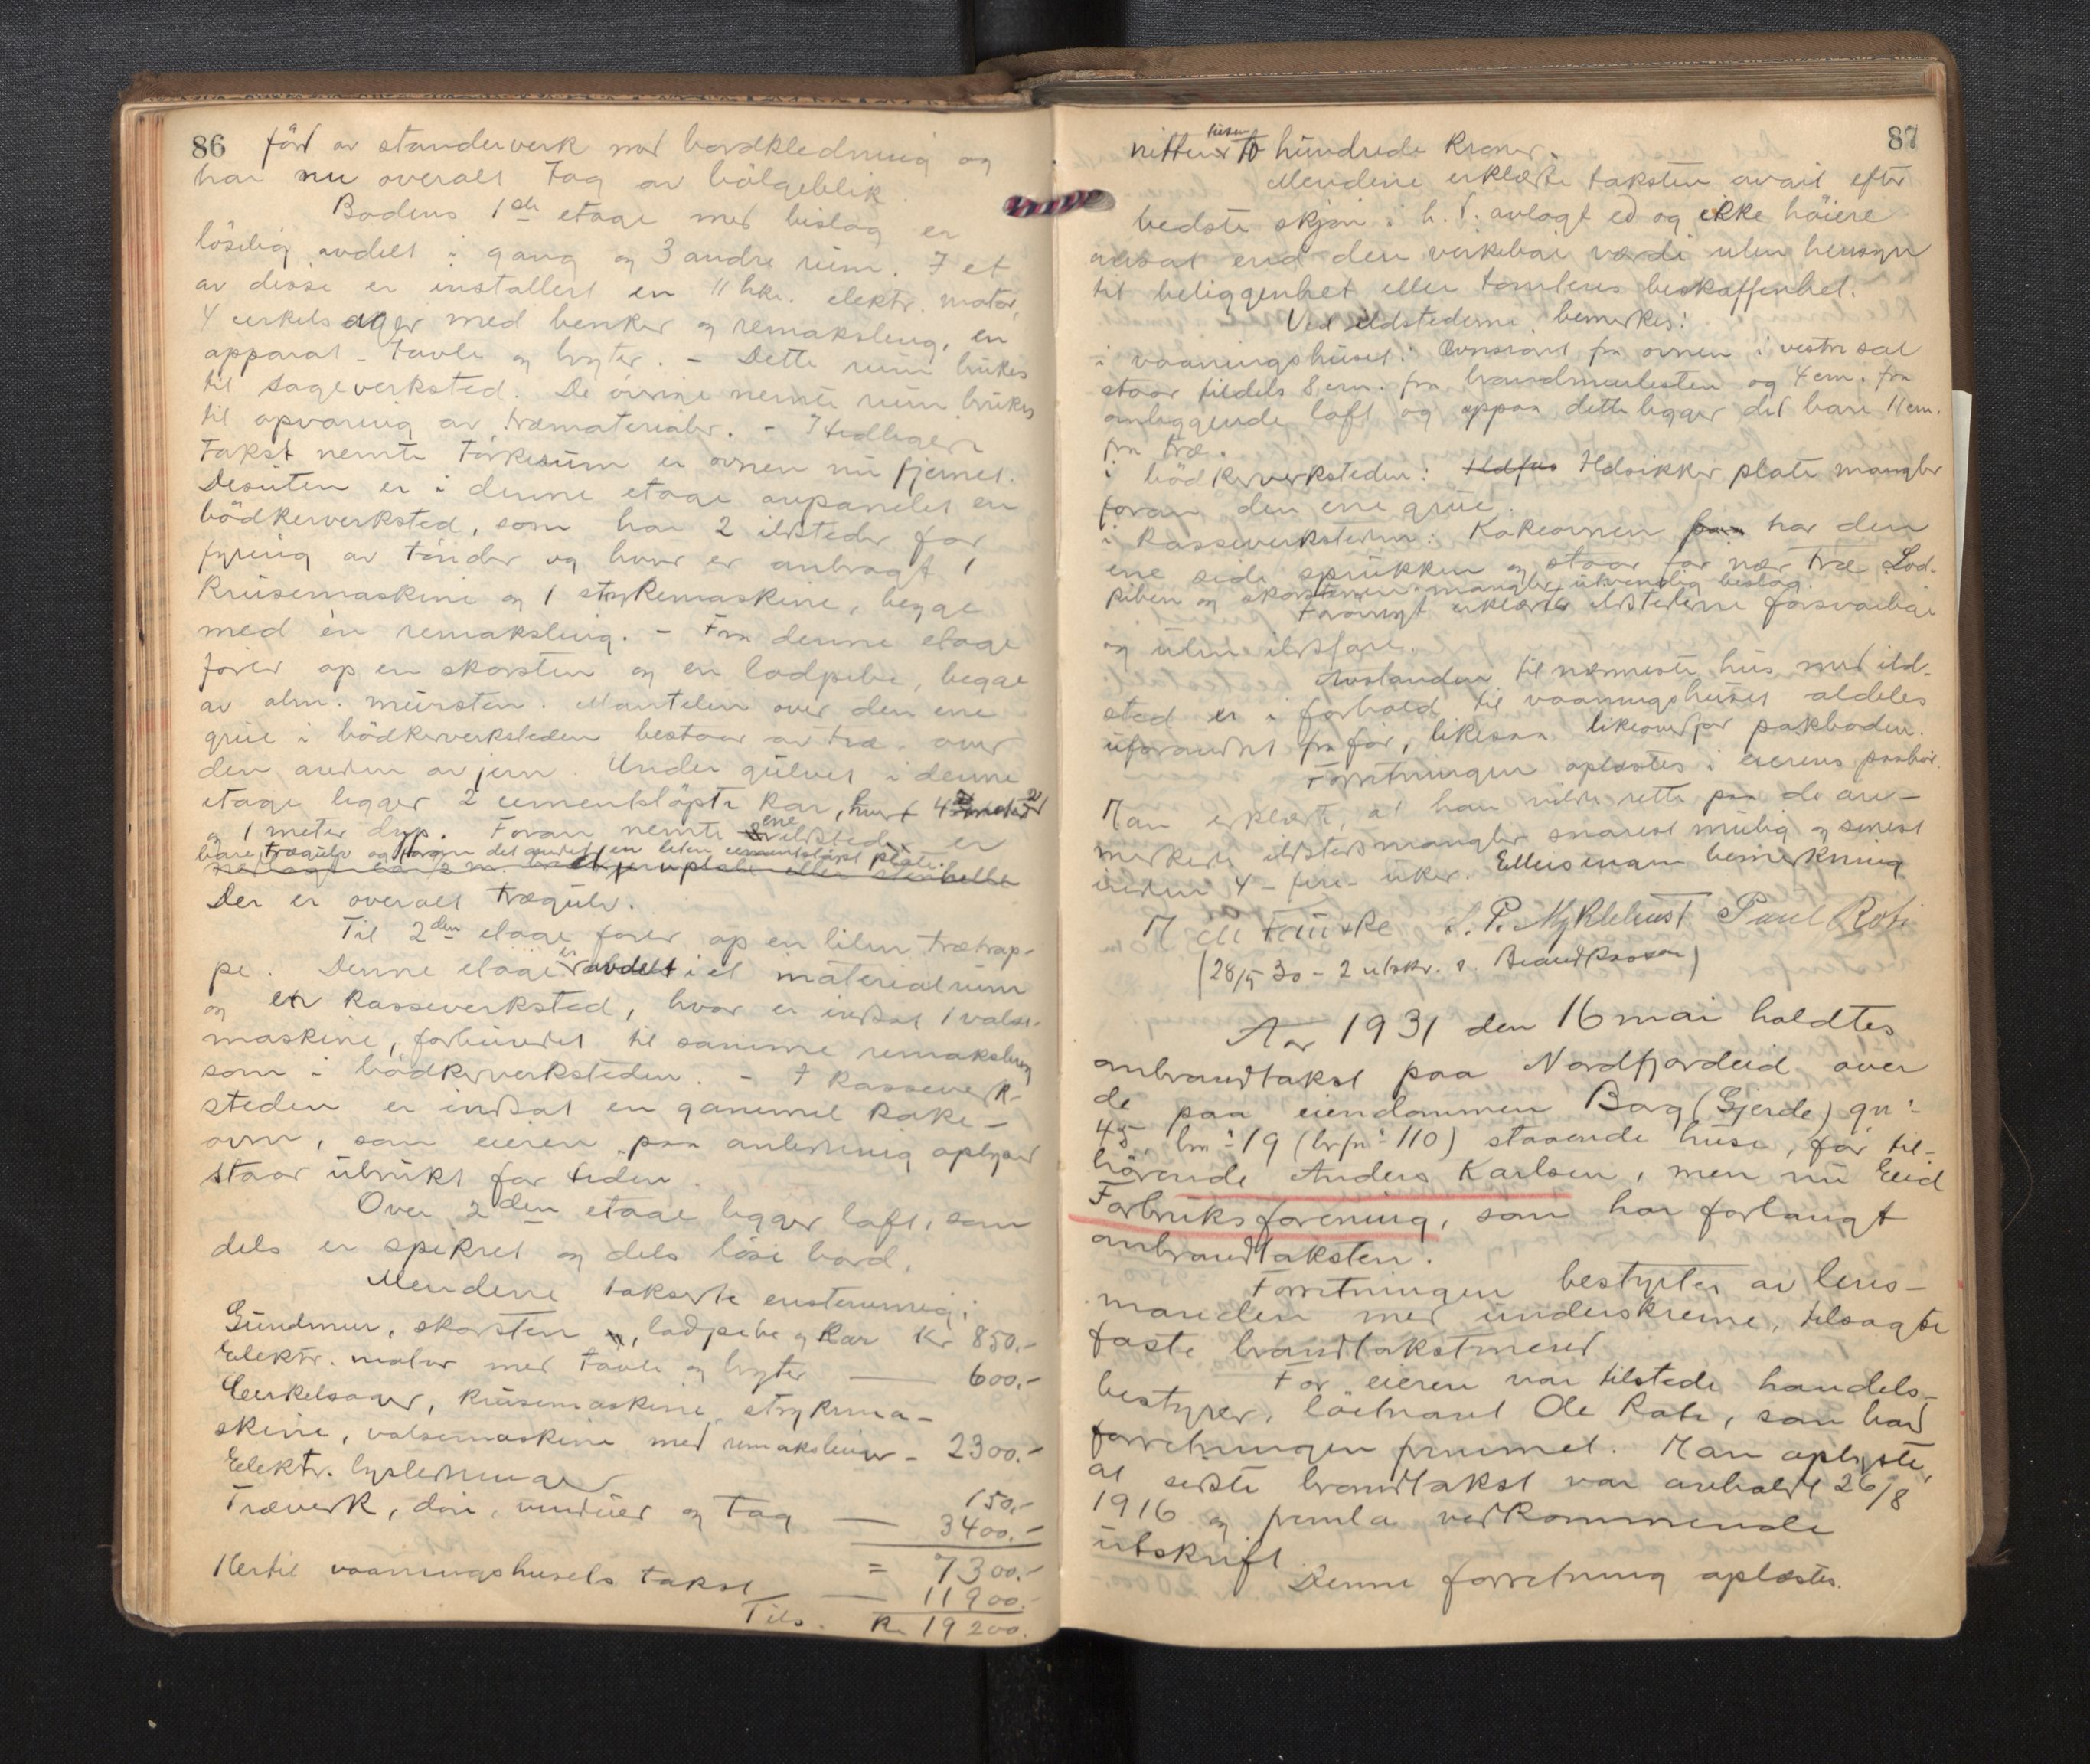 86
förd av standerverk med bordkledning og
har nu overalt Tag av bölgeblik.
Bodens 1ste etage med bislag er
löselig avdelt i gang og 3 andre rum. I et
av disse er installert en 11 hkr. elektr. motor,
4 cirkelsager med benker og remaksleng, en
apparat-tavle og bryter. - Dette rum brukes
til sageverksted. De övrige nemte rum brukes
til opvaring av træmaterialer. - I tidligere
Takst nemte Törkerum er ovnen nu fjernet.
Desuten er i denne etage avpanelet en
bödkerverksted, som har 2 ildsteder for
fyring av Tönder og hvor er anbragt 1
Krusemaskine og 1 strykemaskine, begge
med én remaksling. - Fra denne etage
förer op en skorsten og en lodpibe, begge
av alm. mursten. Mantelen over den ene
grue i bödkerverksteden bestaar av træ, over
den anden av jern. Under gulvet i denne
etage ligger 2 cementstöpte Kar, hvert 4 m2
og 1 meter dyp. Foran nemte ene ildsted er
bare trægulv og foran det andet en liten cementstöpt plate.
Der er overalt trægulv.
Til 2den etage förer op en liten trætrap-
pe. Denne etage er avdelt i et materialrum
og en Kasseverksted, hvor er indsat 1 valse-
maskine, forbundet til samme remaksleng
som i bödkerverksteden. - I Kasseverk-
steden er indsat en gammel Kake-
ovn, som eieren paa anledning oplyser
staar ubrukt for tiden.
Over 2den etage ligger loft, som
dels er spikret og dels löse bord.
Mendene takserte enstemmig:
Grundmur, skorsten, lodpibe og Kar Kr 850.-
Elektr. motor med tavle og bryter — 600.-
Cirkelsager, Krusemaskine, strykema-
skine, valsemaskine med remakslinger - 2300.-
Elektr. lysledninger 150.-
Træverk, dör, vinduer og Tag — 3400.-
= 7300.-
Hertil vaaningshusets takst — 11900.-
Tils. Kr 19200.
87
nitten tusen to hundrede Kroner.
Mendene erklærte taksten avgit efter
bedste skjön i h.t. avlagt ed og ikke höiere
ansat end den virkelige værdi uten hensyn
til beliggenhet eller tomtens beskaffenhet.
Ved ildstederne bemerkes:
i vaaningshuset: Ovnsröret fra ovnen i vestre sal
staar tildels 8 cm. fra brandmurlisten og 4 cm. fra
omliggende loft og oppaa dette ligger det bare 11 cm.
fra træ.
i bödkerverksteden: Ildfas Ildsikker plate mangler
foran den ene grue.
i Kasseverksteden: Kakeovnen paa har den
ene side sprukken og staar for nær træ. Lod-
piben og skorstenen mangler utvendig beslag.
Forövrigt erklærtes ildstederne forsvarlige
og uten ildsfare.
Avstanden til nærmeste hus med ild-
sted er i forhold til vaaningshuset aldeles
uforandret fra för, likesaa likeoverfor pakboden.
Forretningen oplæstes i eierens paahör.
Han erklærte, at han vilde rette paa de an-
merkede ildstedsmangler snarest mulig og senest
inden 4 - fire - uker. Ellers ingen bemerkning
S. P. Myklebust Paul Roti
(28/5 30 - 2 utskr. s. Brandkassen)
Aar 1931 den 16 mai holdtes
anbrandtakst paa Nordfjordeid over
de paa eiendommen Borg (Gjerde) gn:
45 bn: 19 (brfn: 110) staaende huse, för til-
hörende Anders Karlsen, men nu Eid
Forbruksforening, som har forlangt
anbrandtaksten.
Forretningen bestyrtes av lens-
manden med underskrevne, tilsagte
faste brandtakstmend
For eieren var tilstede handels-
bestyrer, löitnant Ole Roti, som bad
forretningen fremmet. Han oplyste,
at sidste brandtakst var avholdt 26/8
1916 og fremla vedkommende
utskrift.
Denne forretning oplæstes.